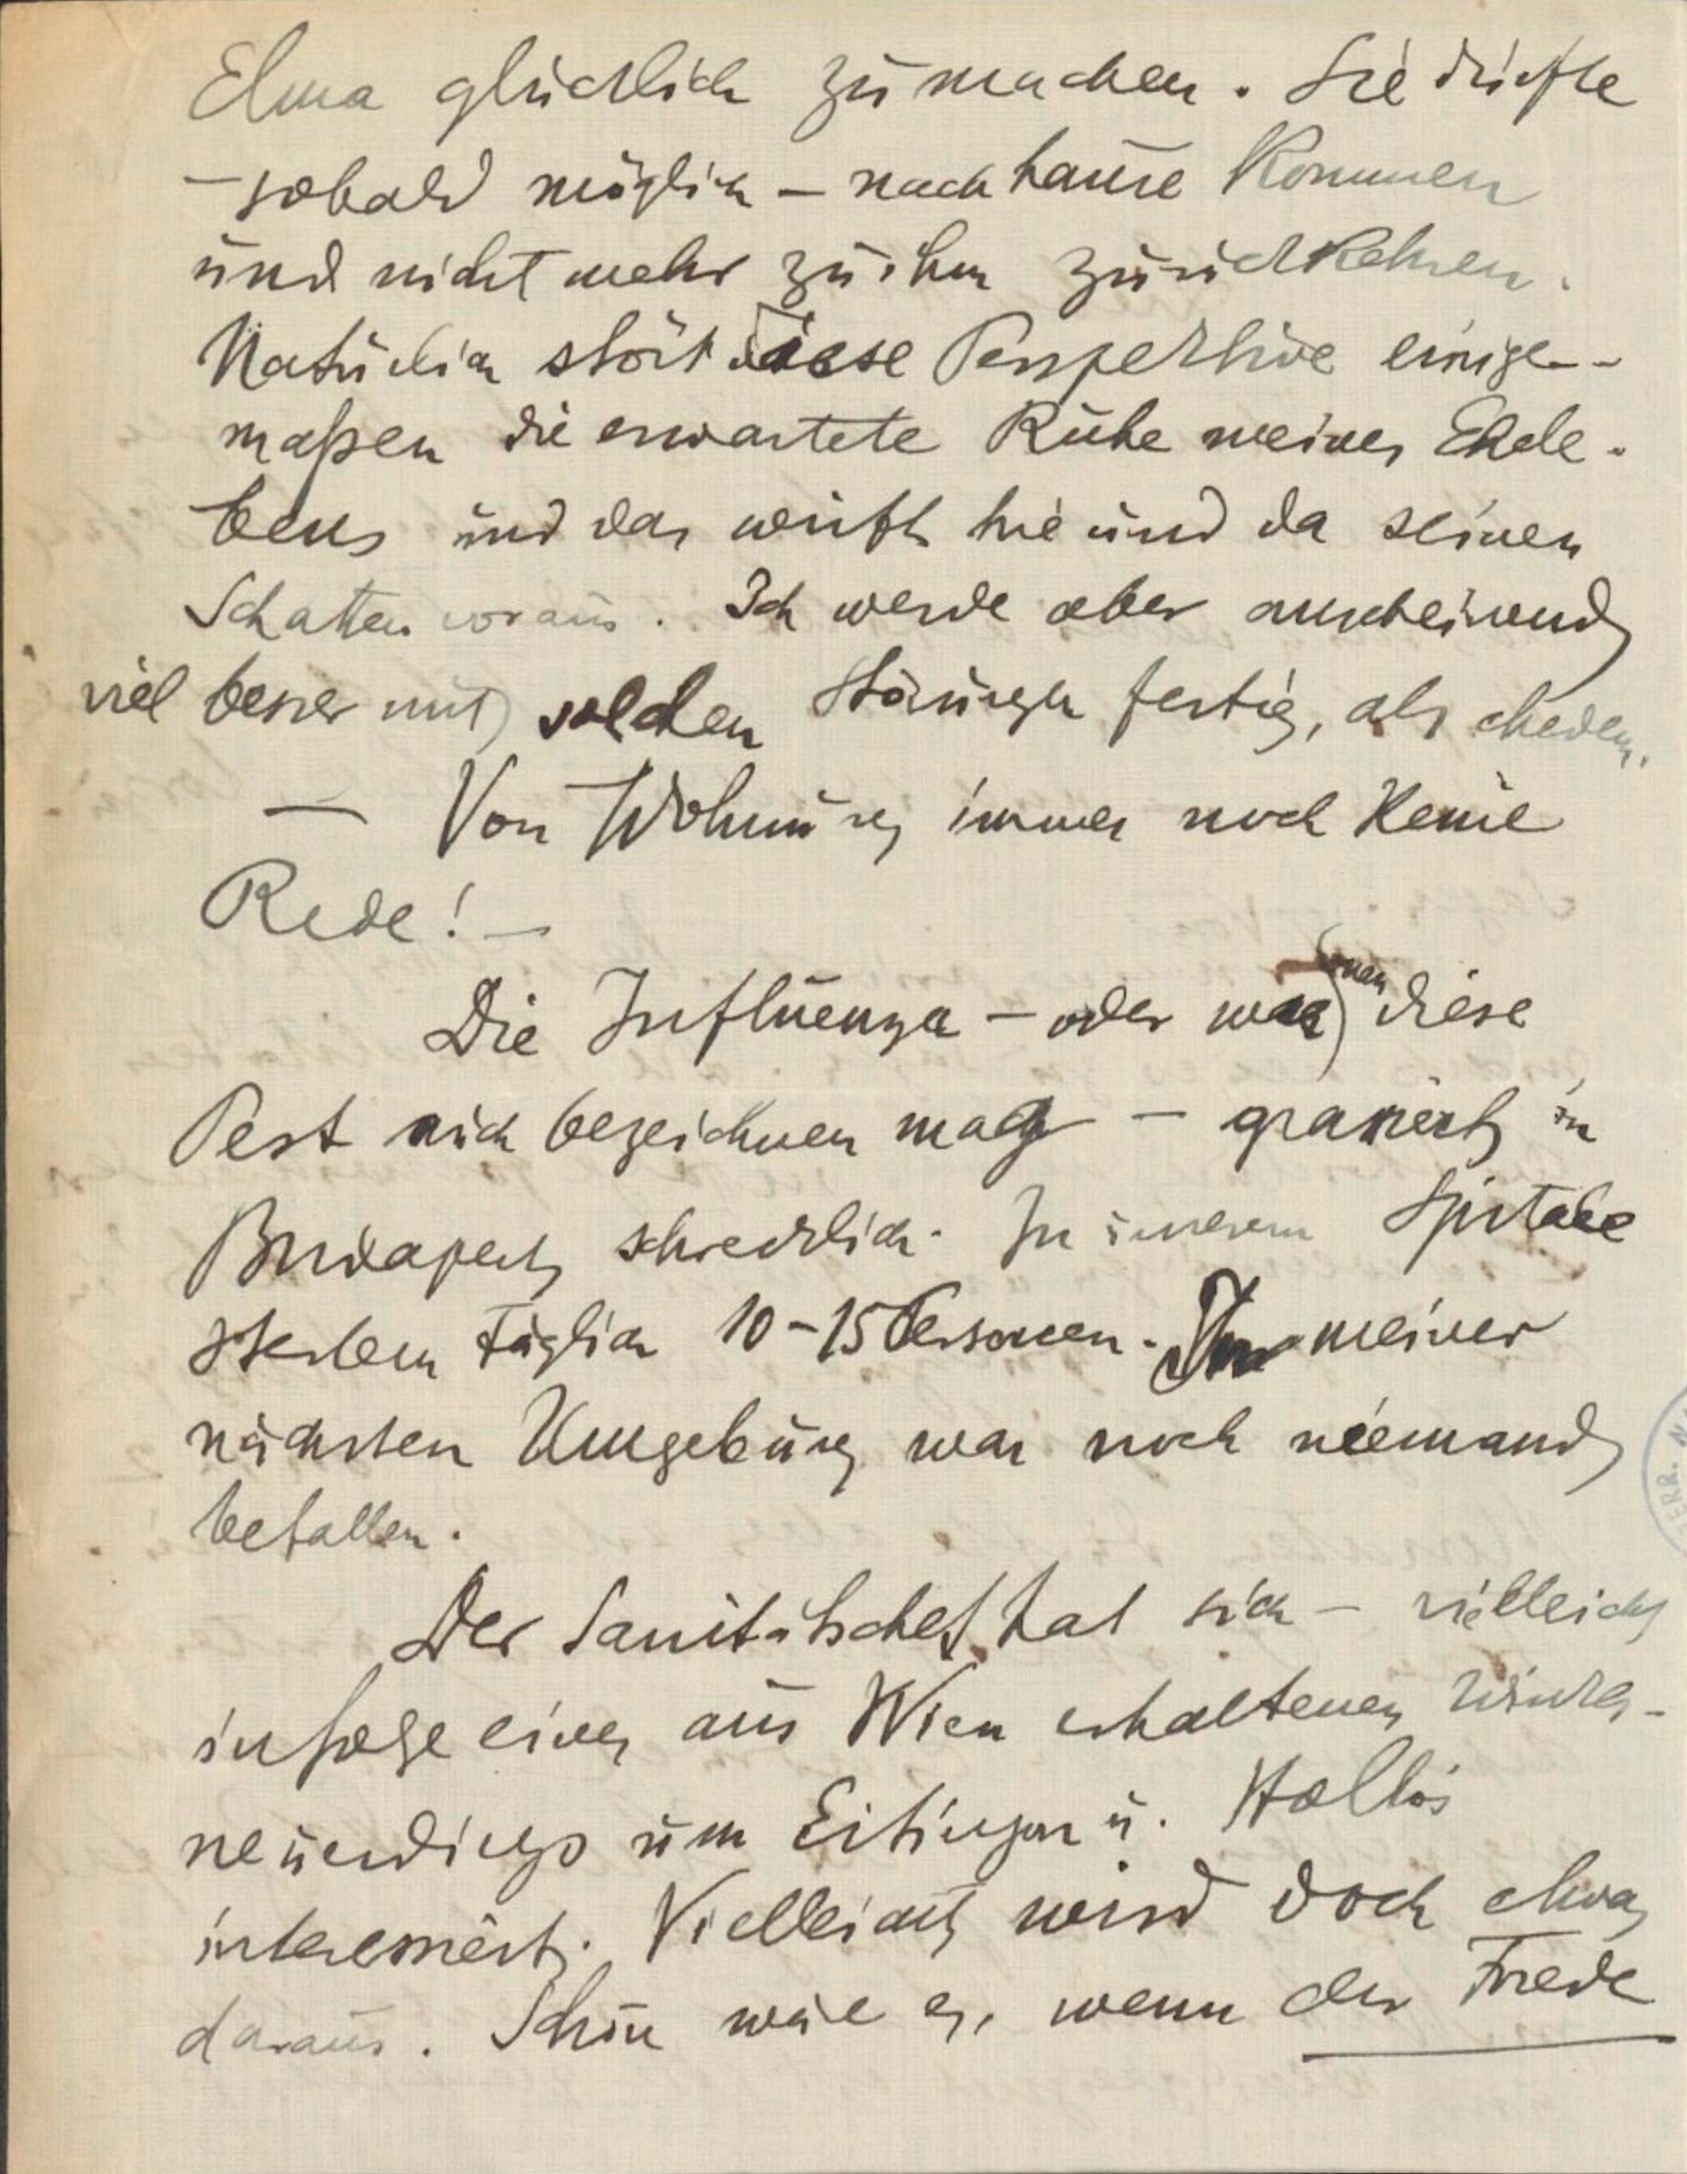 Elma glücklich zu machen. Sie dürfte
– sobald möglich – nach hause kommen
und nicht mehr zu ihm zurückkehren.
Natürlich stört diese Perspektive einiger-
maßen die erwartete Ruhe meines Ehele-
bens und das wirft hie und da seinen
Schatten voraus. Ich werde aber anscheinend
viel besser mit solchen Störungen fertig, als ehedem.
– Von Wohnung immer noch keine
Rede! –
Die Influenza – oder was sonst diese
Pest sich bezeichnen mag – grassiert in
Budapest schrecklich. In unserem Spitale
sterben täglich 10–15 Personen. In meiner
nächsten Umgebung war noch niemand
befallen.
Der Sanitätschef hat sich – vielleicht
infolge eines aus Wien erhaltenen Winkes –
neuerdings um Eitingon u. Hollós
interessiert. Vielleicht wird doch etwas
daraus. Schön wäre es, wenn der Friede